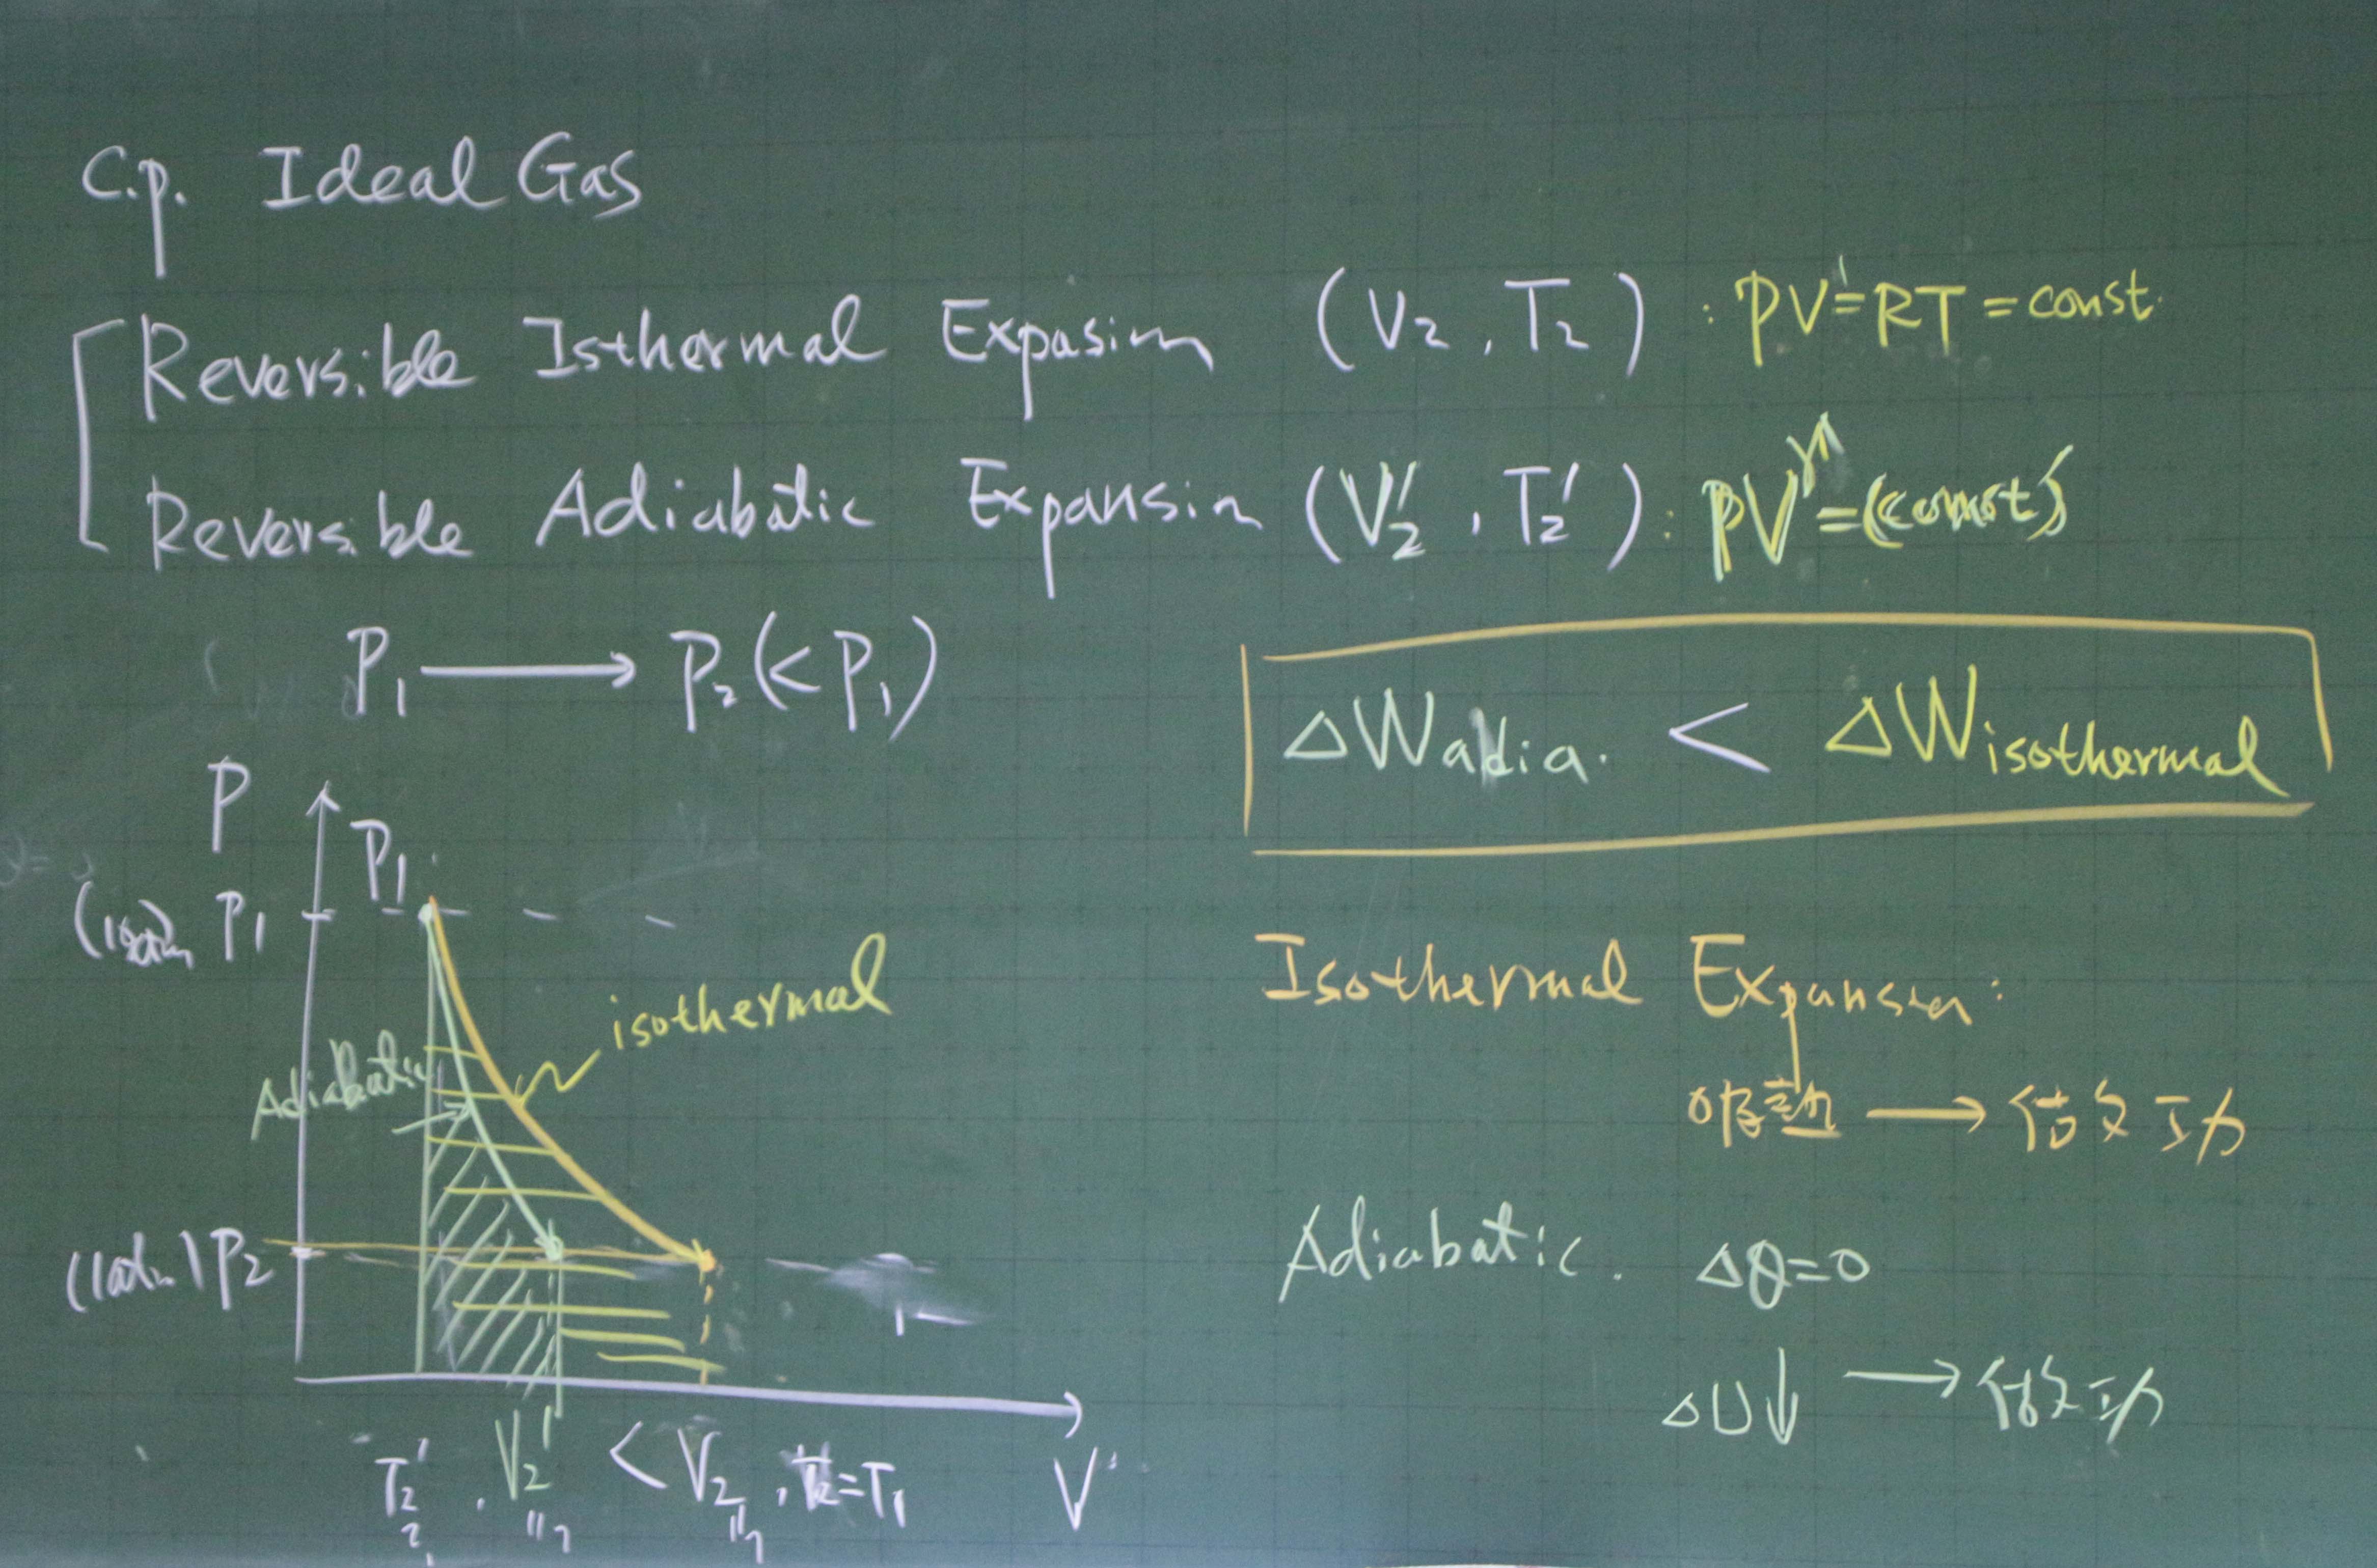 C.p. Ideal Gas
Reversible Isthermal Expasion (V₂, T₂) : PV¹=RT = const.
Reversible Adiabatic Expansion (V₂', T₂') : PV^γ=(const)
P₁ → P₂(< P₁)
ΔWadia. < ΔWisothermal
P
P₁
P₁
isothermal
Adiabatic
(1atm) P₂
T₂', V₂' < V₂, T₂=T₁
V
Isothermal Expansion:
吸热 → 做功
Adiabatic. ΔQ=0
ΔU↓ → 做功